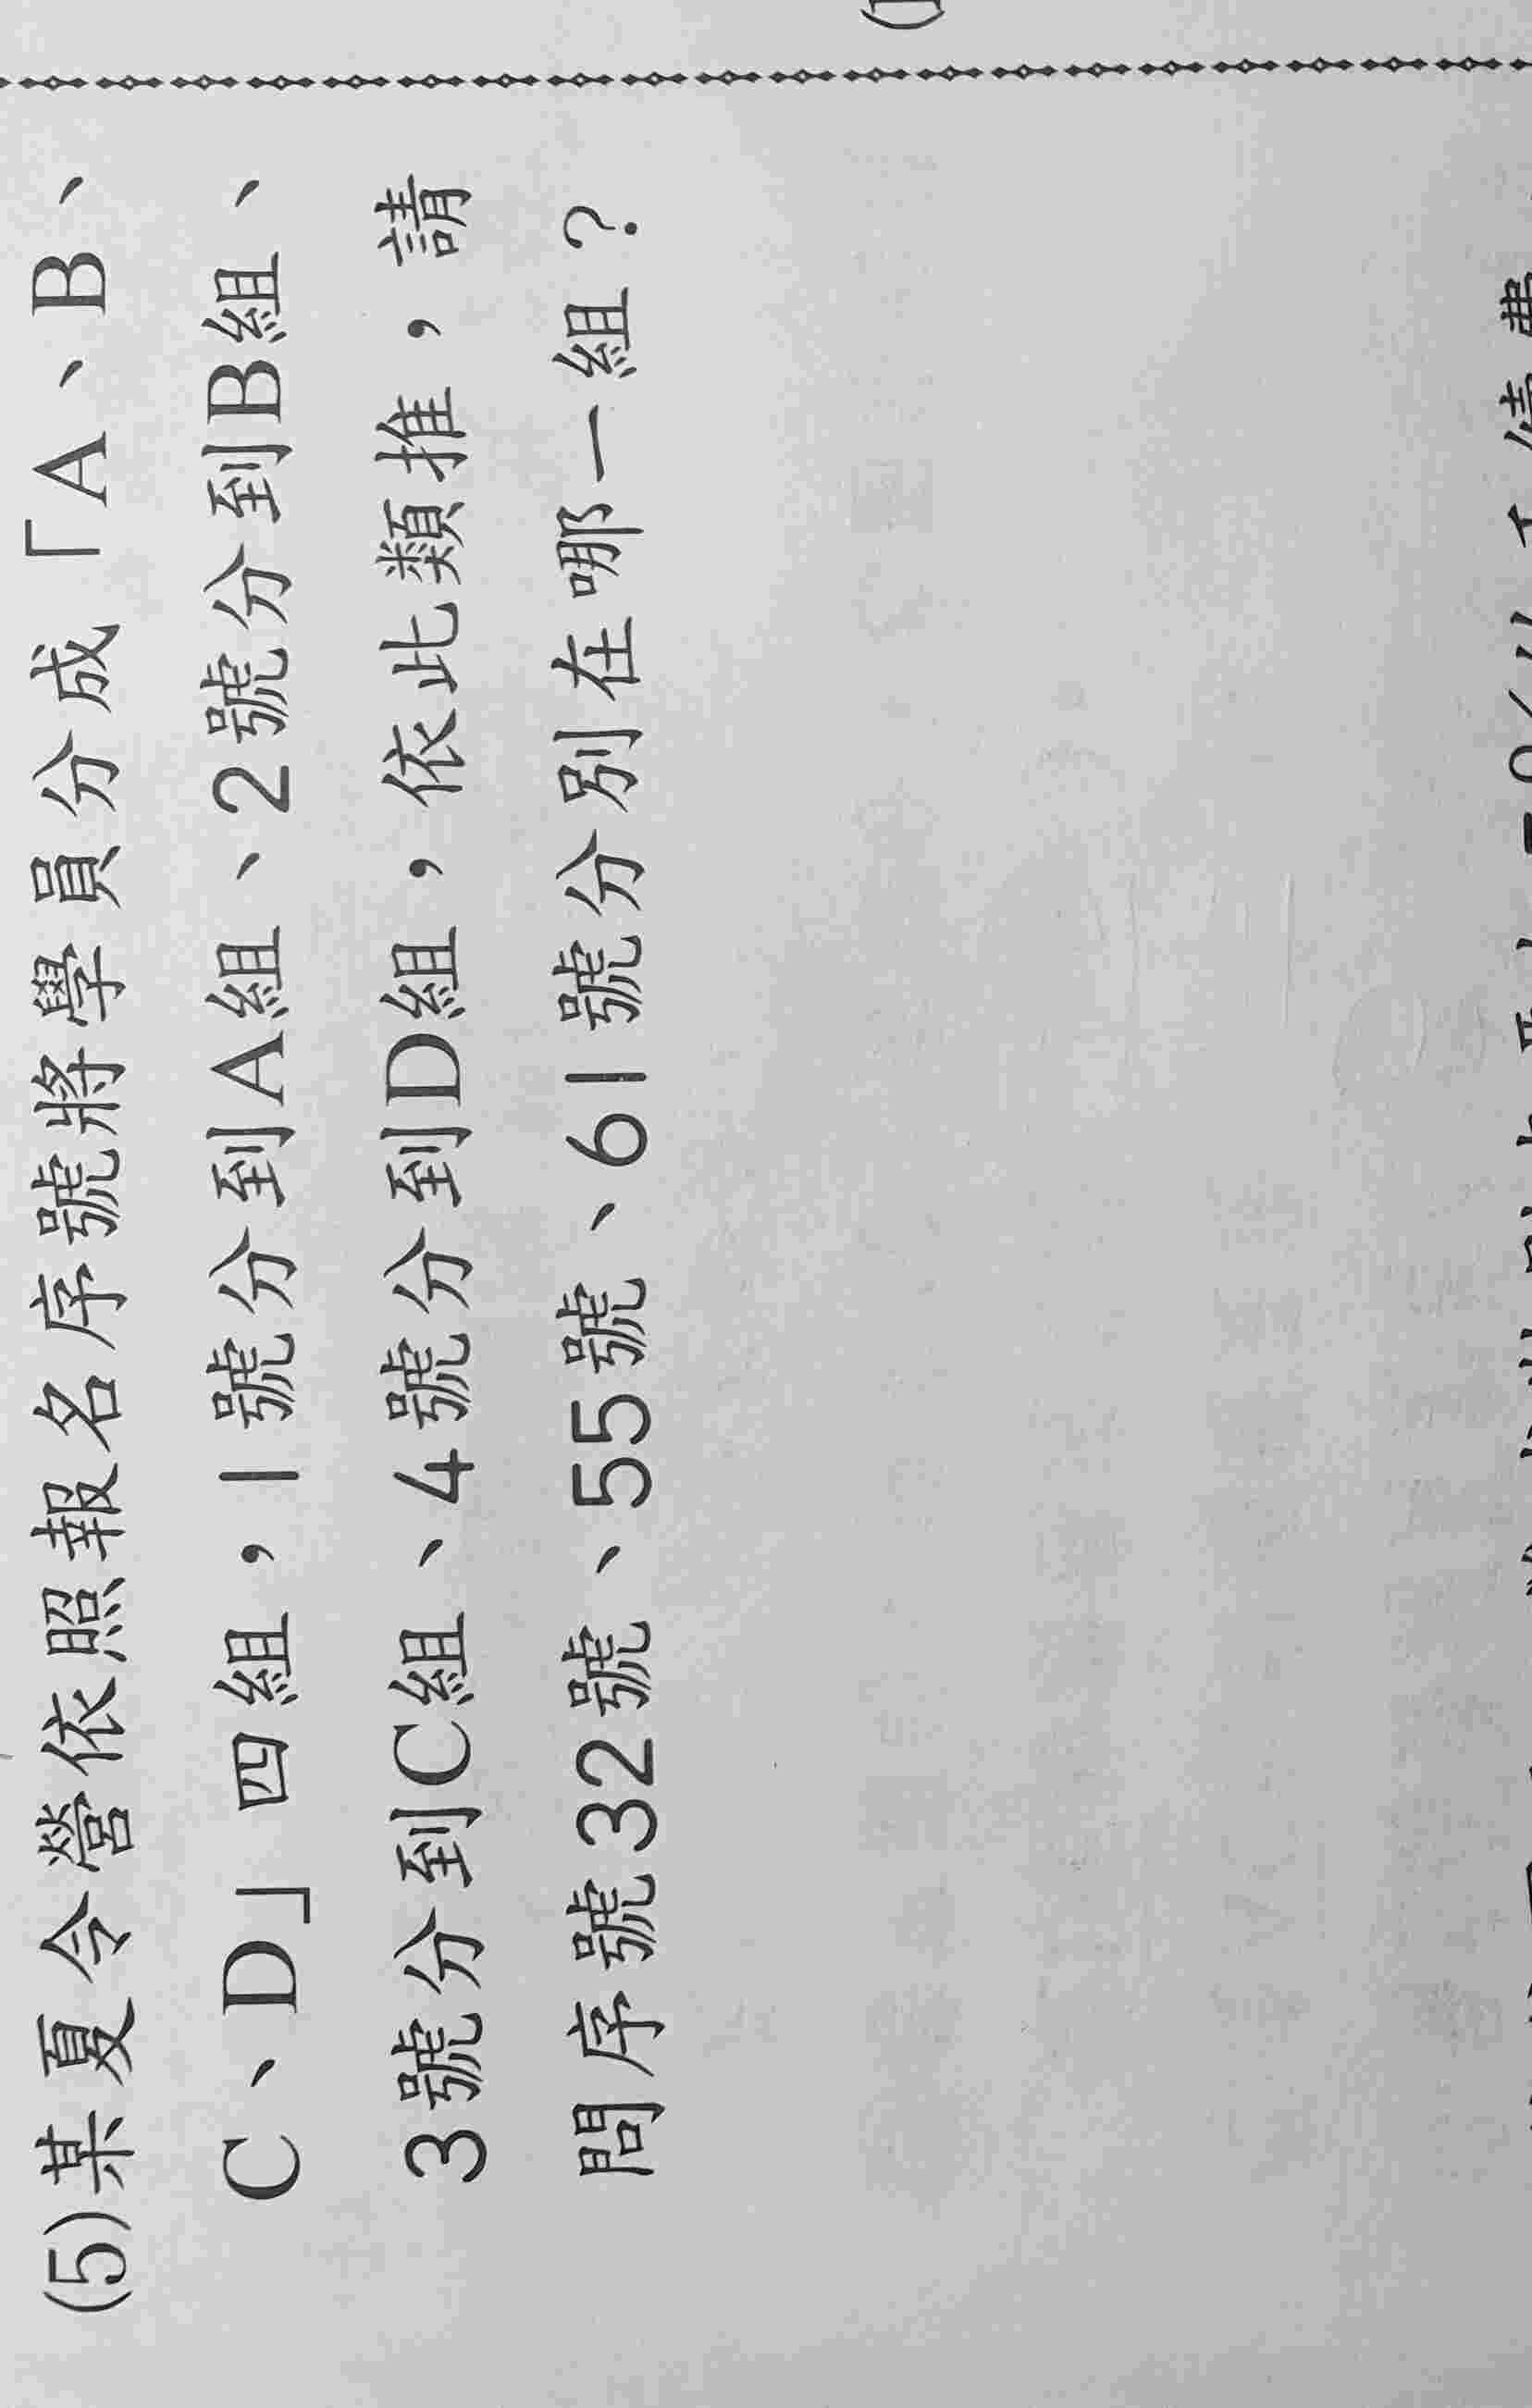 (5)某夏令營依照報名序號將學員分成「A、B、
C、D」四組，1號分到A組、2號分到B組、
3號分到C組、4號分到D組，依此類推，請
問序號32號、55號、61號分別在哪一組？